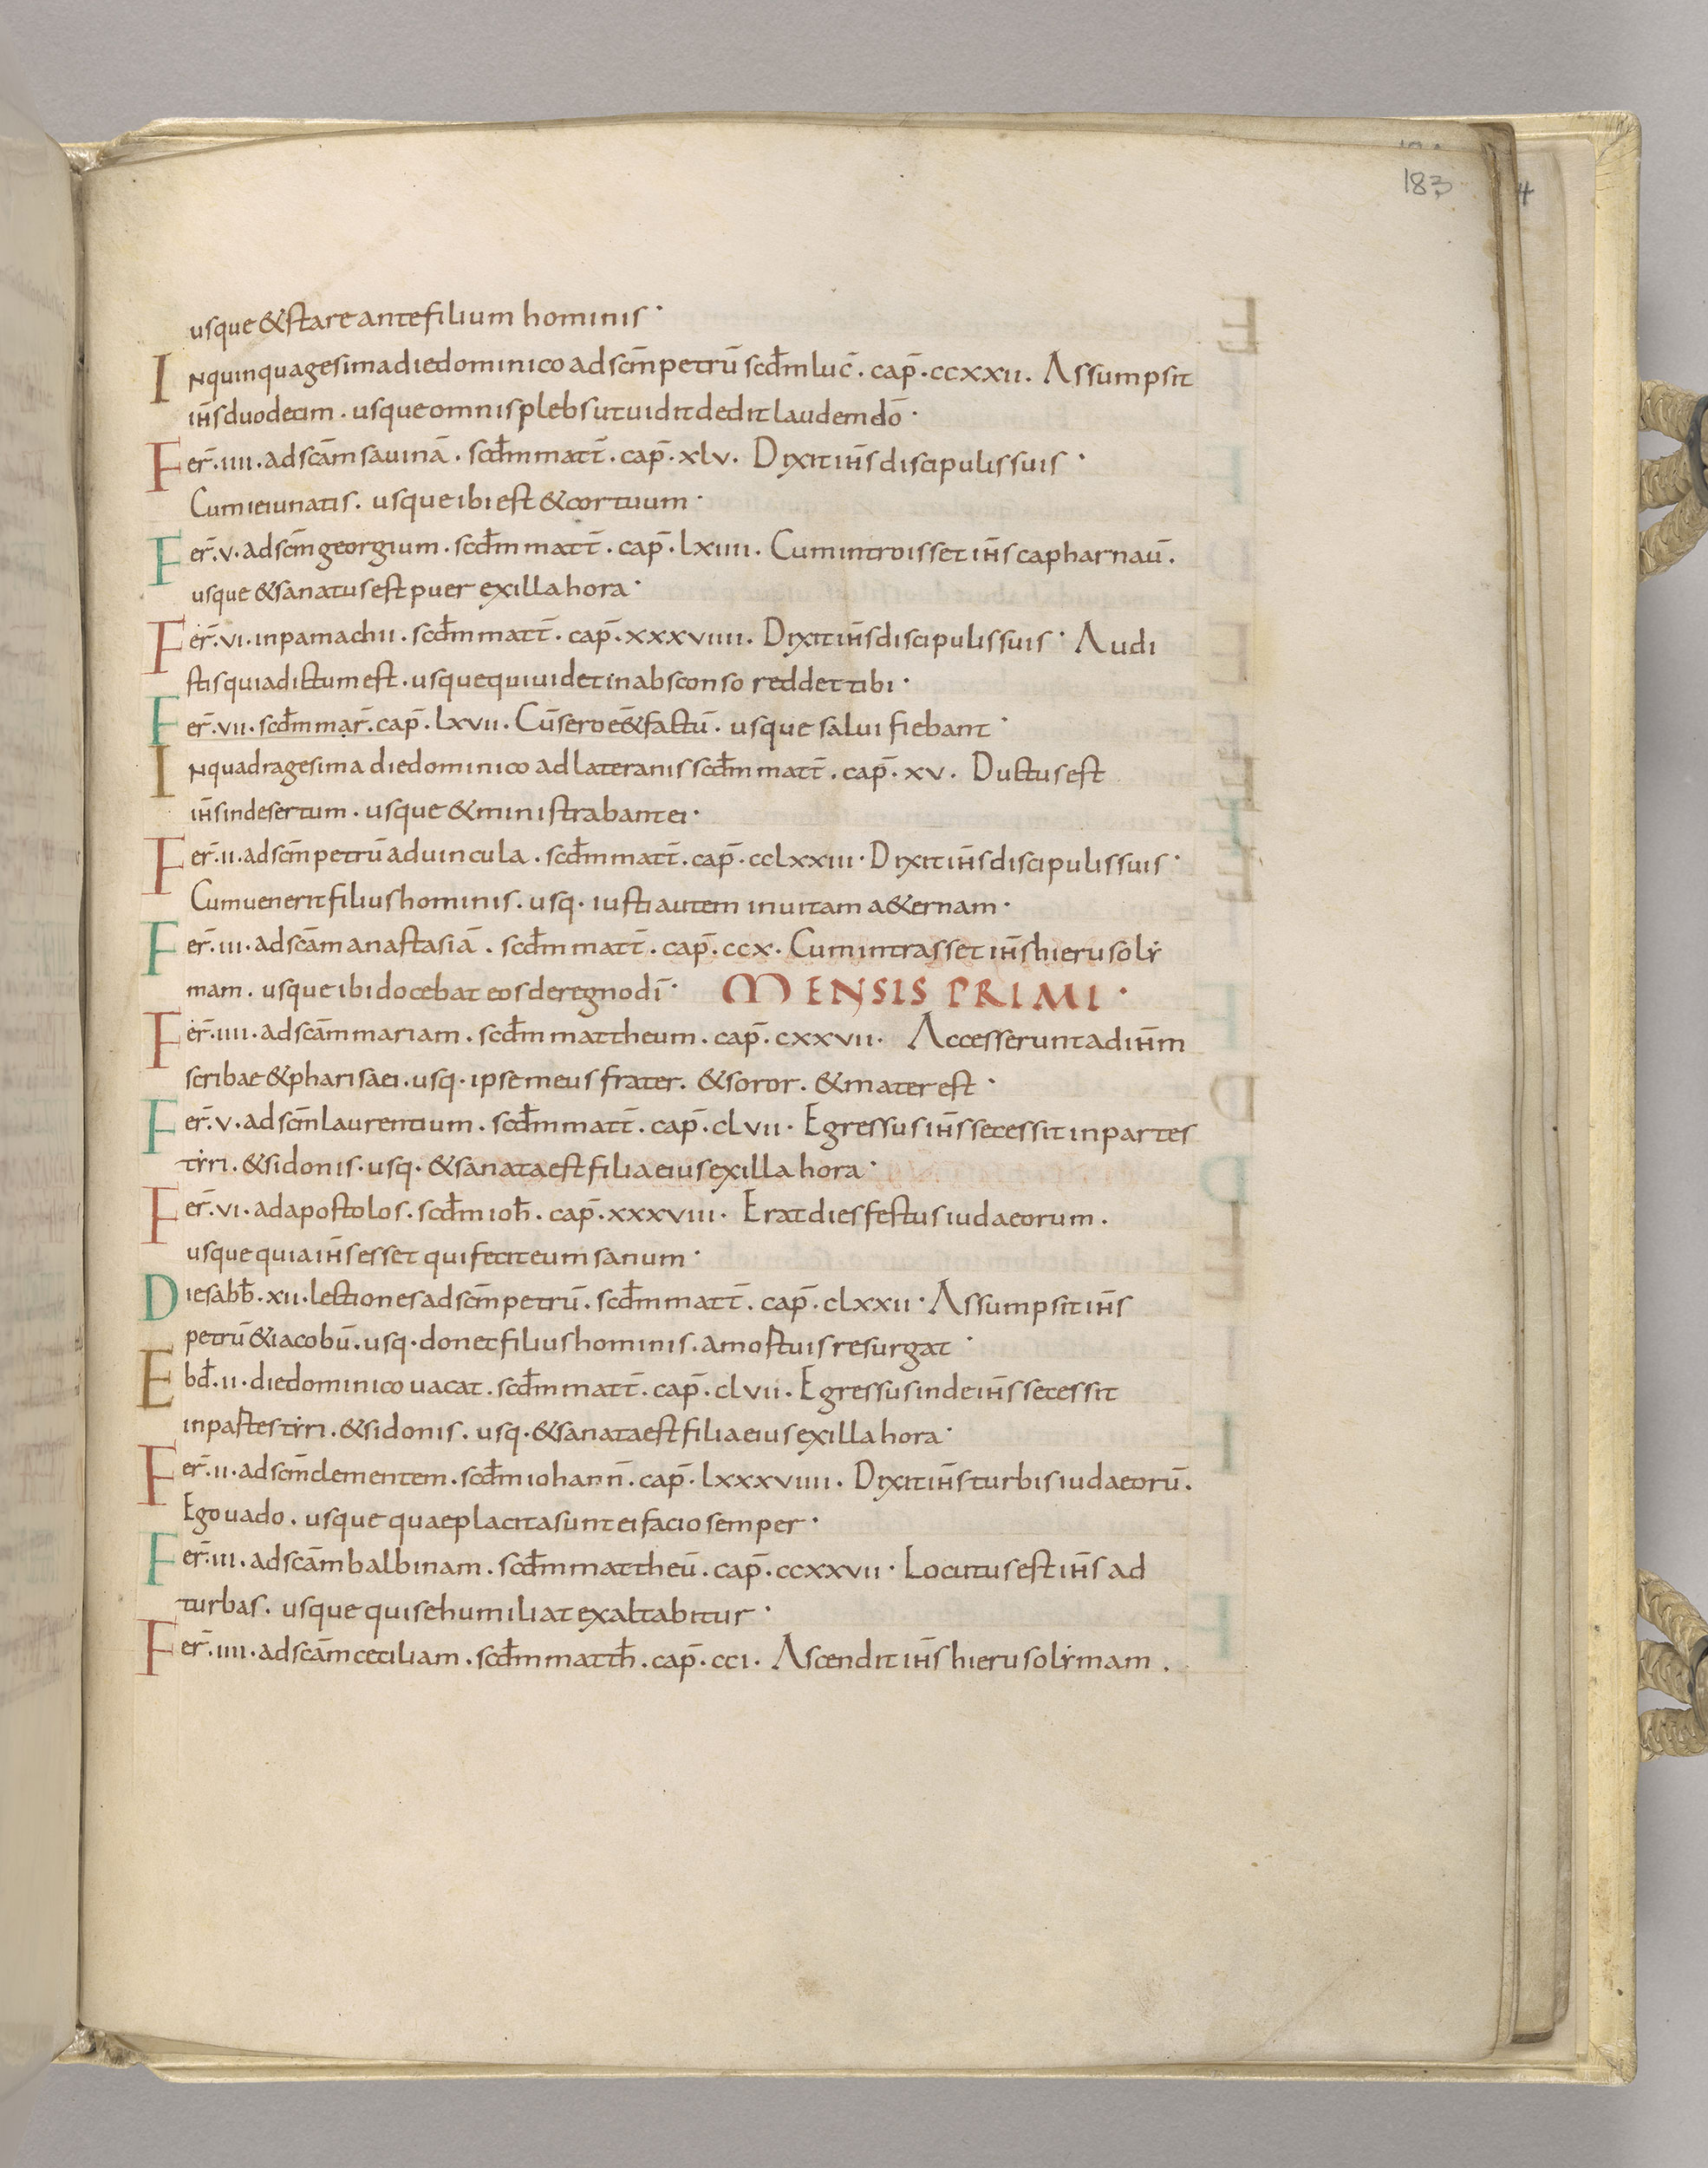 183
usque & stare ante filium hominis ·
In quinquagesima die dominico ad sc̄m petrū scd̄m luc̄ . cap̄ . ccxxii . Assumpsit
ih̄s duodecim . usque omnis plebs ut uidit dedit laudem dō ·
Fer̄ . iiii . ad scām sauinā . scd̄m matt̄ . cap̄ . xlv . Dixit ih̄s discipulis suis ·
Cum ieiunatis . usque ibi est & cor tuum ·
Fer̄ . v . ad sc̄m georgium . scd̄m matt̄ . cap̄ . lxiiii . Cum introisset ih̄s capharnaū .
usque & sanatus est puer ex illa hora ·
Fer̄ . vi . in pamachii . scd̄m matt̄ . cap̄ . xxxviiii . Dixit ih̄s discipulis suis · Audi
stis quia dictum est . usque qui uidet in absconso reddet tibi ·
Fer̄ . vii . scd̄m mar̄ . cap̄ . lxvii . Cū sero eēt factū . usque salui fiebant ·
In quadragesima die dominico ad lateranis scd̄m matt̄ . cap̄ . xv . Ductus est
ih̄s in desertum . usque & ministrabant ei ·
Fer̄ . ii . ad sc̄m petrū ad uincula . scd̄m matt̄ . cap̄ . cclxxiii · Dixit ih̄s discipulis suis ·
Cum uenerit filius hominis . usq · iusti autem in uitam a&ernam ·
Fer̄ . iii . ad scām anastasiā . scd̄m matt̄ . cap̄ . ccx . Cum intrasset ih̄s hierusoly
mam . usque ibi docebat eos de regno dī · MENSIS PRIMI ·
Fer̄ . iiii . ad scām mariam . scd̄m mattheum . cap̄ . cxxvii · Accesserunt ad ih̄m
scribae & pharisaei . usq · ipse meus frater . & soror . & mater est ·
Fer̄ . v . ad sc̄m laurentium . scd̄m matt̄ . cap̄ . clvii · Egressus ih̄s secessit in partes
tyri . & sidonis . usq · & sanata est filia eius ex illa hora ·
Fer̄ . vi . ad apostolos . scd̄m ioh̄ . cap̄ . xxxviii · Erat dies festus iudaeorum .
usque quia ih̄s esset qui fecit eum sanum ·
Die sabb̄ . xii . lectiones ad sc̄m petrū . scd̄m matt̄ . cap̄ . clxxii · Assumpsit ih̄s
petrū & iacobū . usq · donec filius hominis . a mortuis resurgat ·
Ebd̄ . ii . die dominico uacat . scd̄m matt̄ . cap̄ . clvii . Egressus inde ih̄s secessit
in partes tyri . & sidonis . usq · & sanata est filia eius ex illa hora ·
Fer̄ . ii . ad sc̄m clementem . scd̄m iohann̄ . cap̄ . lxxxviiii . Dixit ih̄s turbis iudaeorū .
Ego uado . usque quae placita sunt ei facio semper ·
Fer̄ . iii . ad scām balbinam . scd̄m mattheū . cap̄ . ccxxvii · Locutus est ih̄s ad
turbas . usque qui se humiliat exaltabitur ·
Fer̄ . iiii . ad scām ceciliam . scd̄m matth̄ . cap̄ . cci . Ascendit ih̄s hierusolymam .